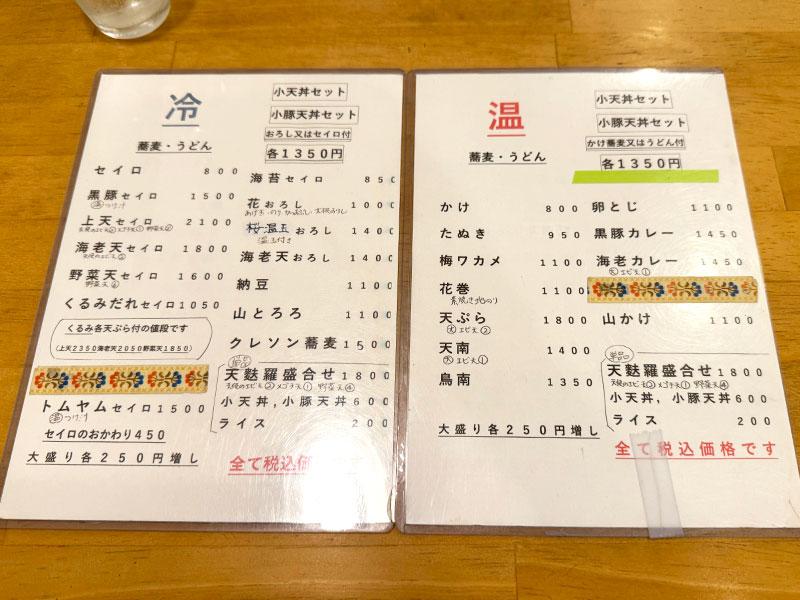 冷
蕎麦・うどん
小天丼セット
小豚天丼セット
おろし又はセイロ付
各1350円
セイロ 800
黒豚セイロ 1500
温つけ汁
上天セイロ 2100
天使のエビ天② メゴチ天① 野菜天②
海老天セイロ 1800
天使のエビ天③
野菜天セイロ 1600
野菜天⑥
くるみだれセイロ 1050
くるみ各天ぷら付の値段です
(上天2350海老天2050野菜天1850)
トムヤムセイロ 1500
温つけ汁
セイロのおかわり450
大盛り各250円増し
海苔セイロ 850
花おろし 1000
おろし 1400
温玉付き
海老天おろし 1400
納豆 1100
山とろろ 1100
クレソン蕎麦 1500
単品
天麩羅盛合せ 1800
天使のエビ天② メゴチ天① 野菜天④
小天丼,小豚天丼 600
ライス 200
全て税込価
温
蕎麦・うどん
小天丼セット
小豚天丼セット
かけ蕎麦又はうどん付
各1350円
かけ 800
たぬき 950
梅ワカメ 1100
花巻 1100
天ぷら 1800
大エビ天②
天南 1400
大エビ天①
鳥南 1350
大盛り各250円増し
卵とじ 1100
黒豚カレー 1450
海老カレー 1450
大エビ天①
山かけ 1100
単品
天麩羅盛合せ 1800
天使のエビ天② メゴチ天① 野菜天④
小天丼,小豚天丼 600
ライス 200
全て税込価格です